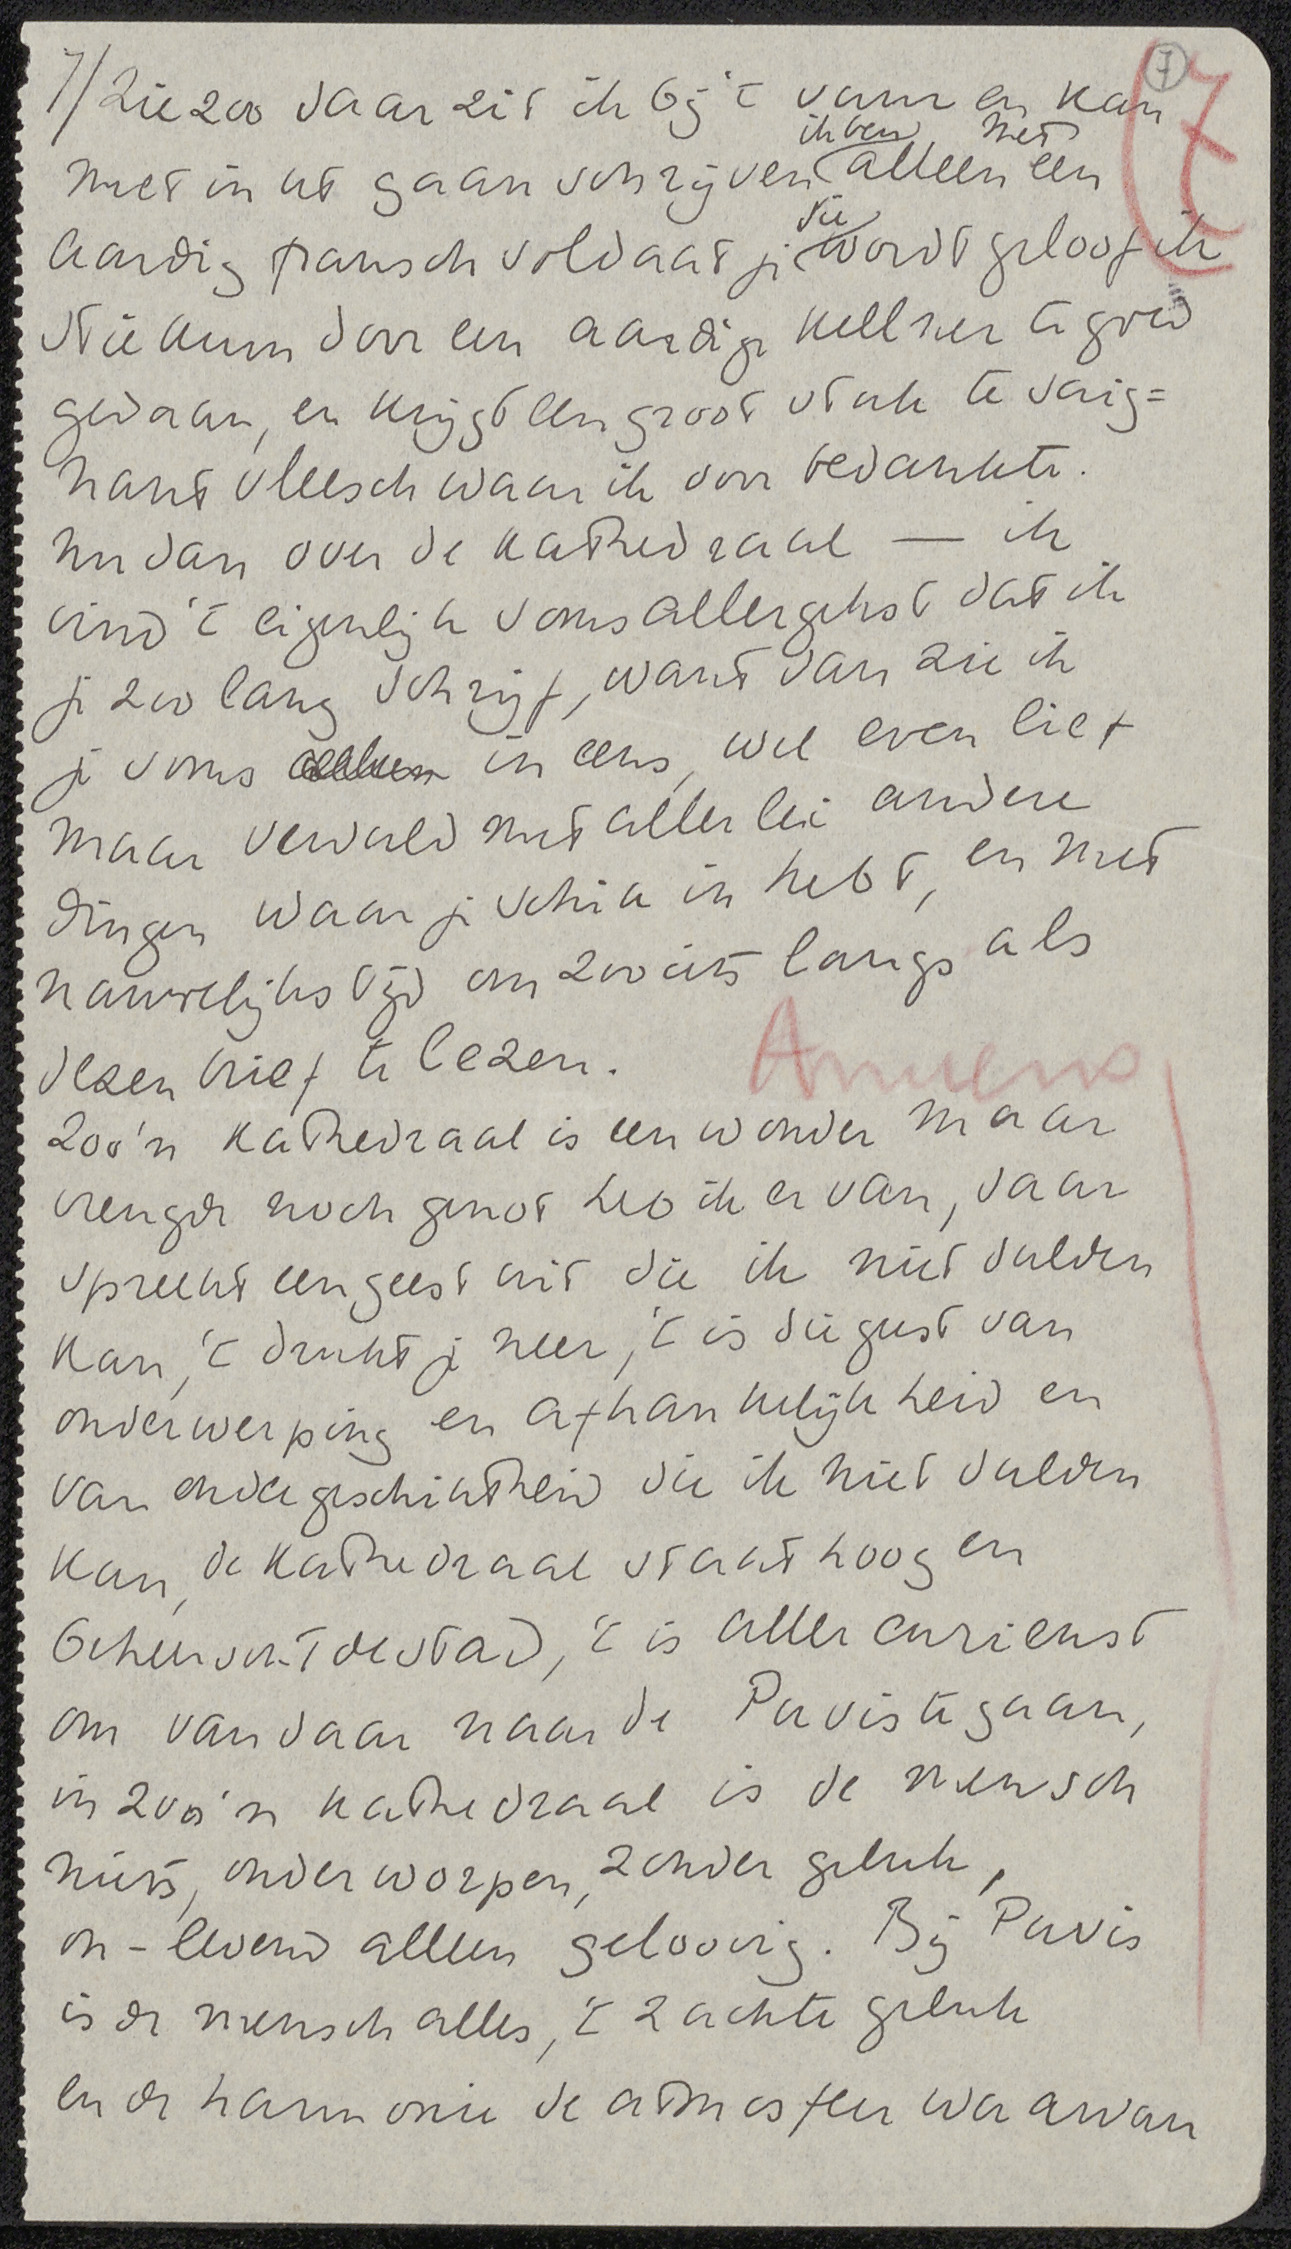 7
7
7/ Zie zoo daar zit ik bij 't vuur en kan
met inkt gaan schrijven ik ben alleen met een
aardig fransch soldaatje die wordt geloof ik
stiekum door een aardige kellner te goed
gedaan, en krijgt een groot stuk te
vleesch waar ik voor bedankte.
Nu dan over de Kathedraal — ik
vind 't eigenlijk soms allergekst dat ik
je zoo lang schrijf, want dan zie ik
je soms in eens, wel even lief
maar vervuld met allerlei andere
dingen waar je schik in hebt, en met
nauwelijks tijd om zoo iets langs als
dezen brief te lezen.
Amiens
Zoo'n Kathedraal is een wonder maar
vreugde noch genot heb ik er van, daar
spreekt een geest uit die ik niet dulden
kan, 't drukt je neer, 't is die geest van
onderwerping en afhankelijkheid en
van ondergeschiktheid die ik niet dulden
kan, de Kathedraal staat hoog en
beheerscht de stad, 't is aller curieust
om van daar naar de Puvis te gaan,
in zoo'n Kathedraal is de mensch
niets, onderworpen, zonder geluk,
on-levend alleen geloovig. Bij Puvis
is de mensch alles, 't zachte geluk
en de harmonie de atmosfeer waarvan